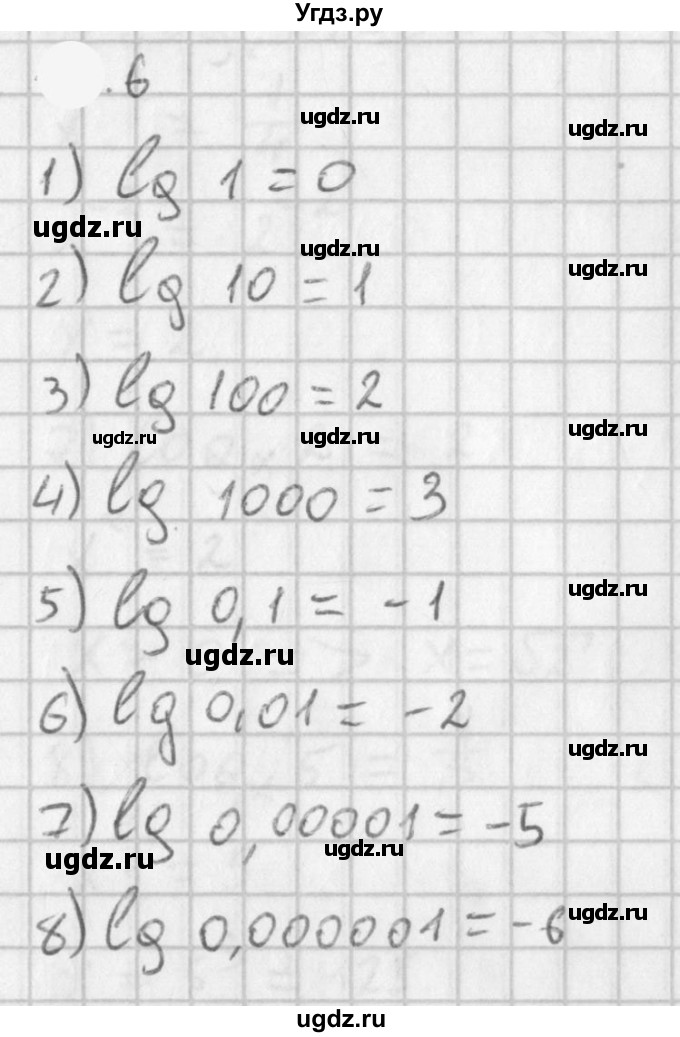 Угдз.ру
.6
ugdz.ru
ugdz.ru
1) lg 1 = 0
ugdz.ru
ugdz.ru
ugdz.ru
2) lg 10 = 1
3) lg 100 = 2
ugdz.ru
ugdz.ru
ugdz.ru
4) lg 1000 = 3
5) lg 0,1 = -1
ugdz.ru
ugdz.ru
6) lg 0,01 = -2
ugdz.ru
7) lg 0,00001 = -5
ugdz.ru
ugdz.ru
8) lg 0,000001 = -6
ugdz.ru
ugdz.ru